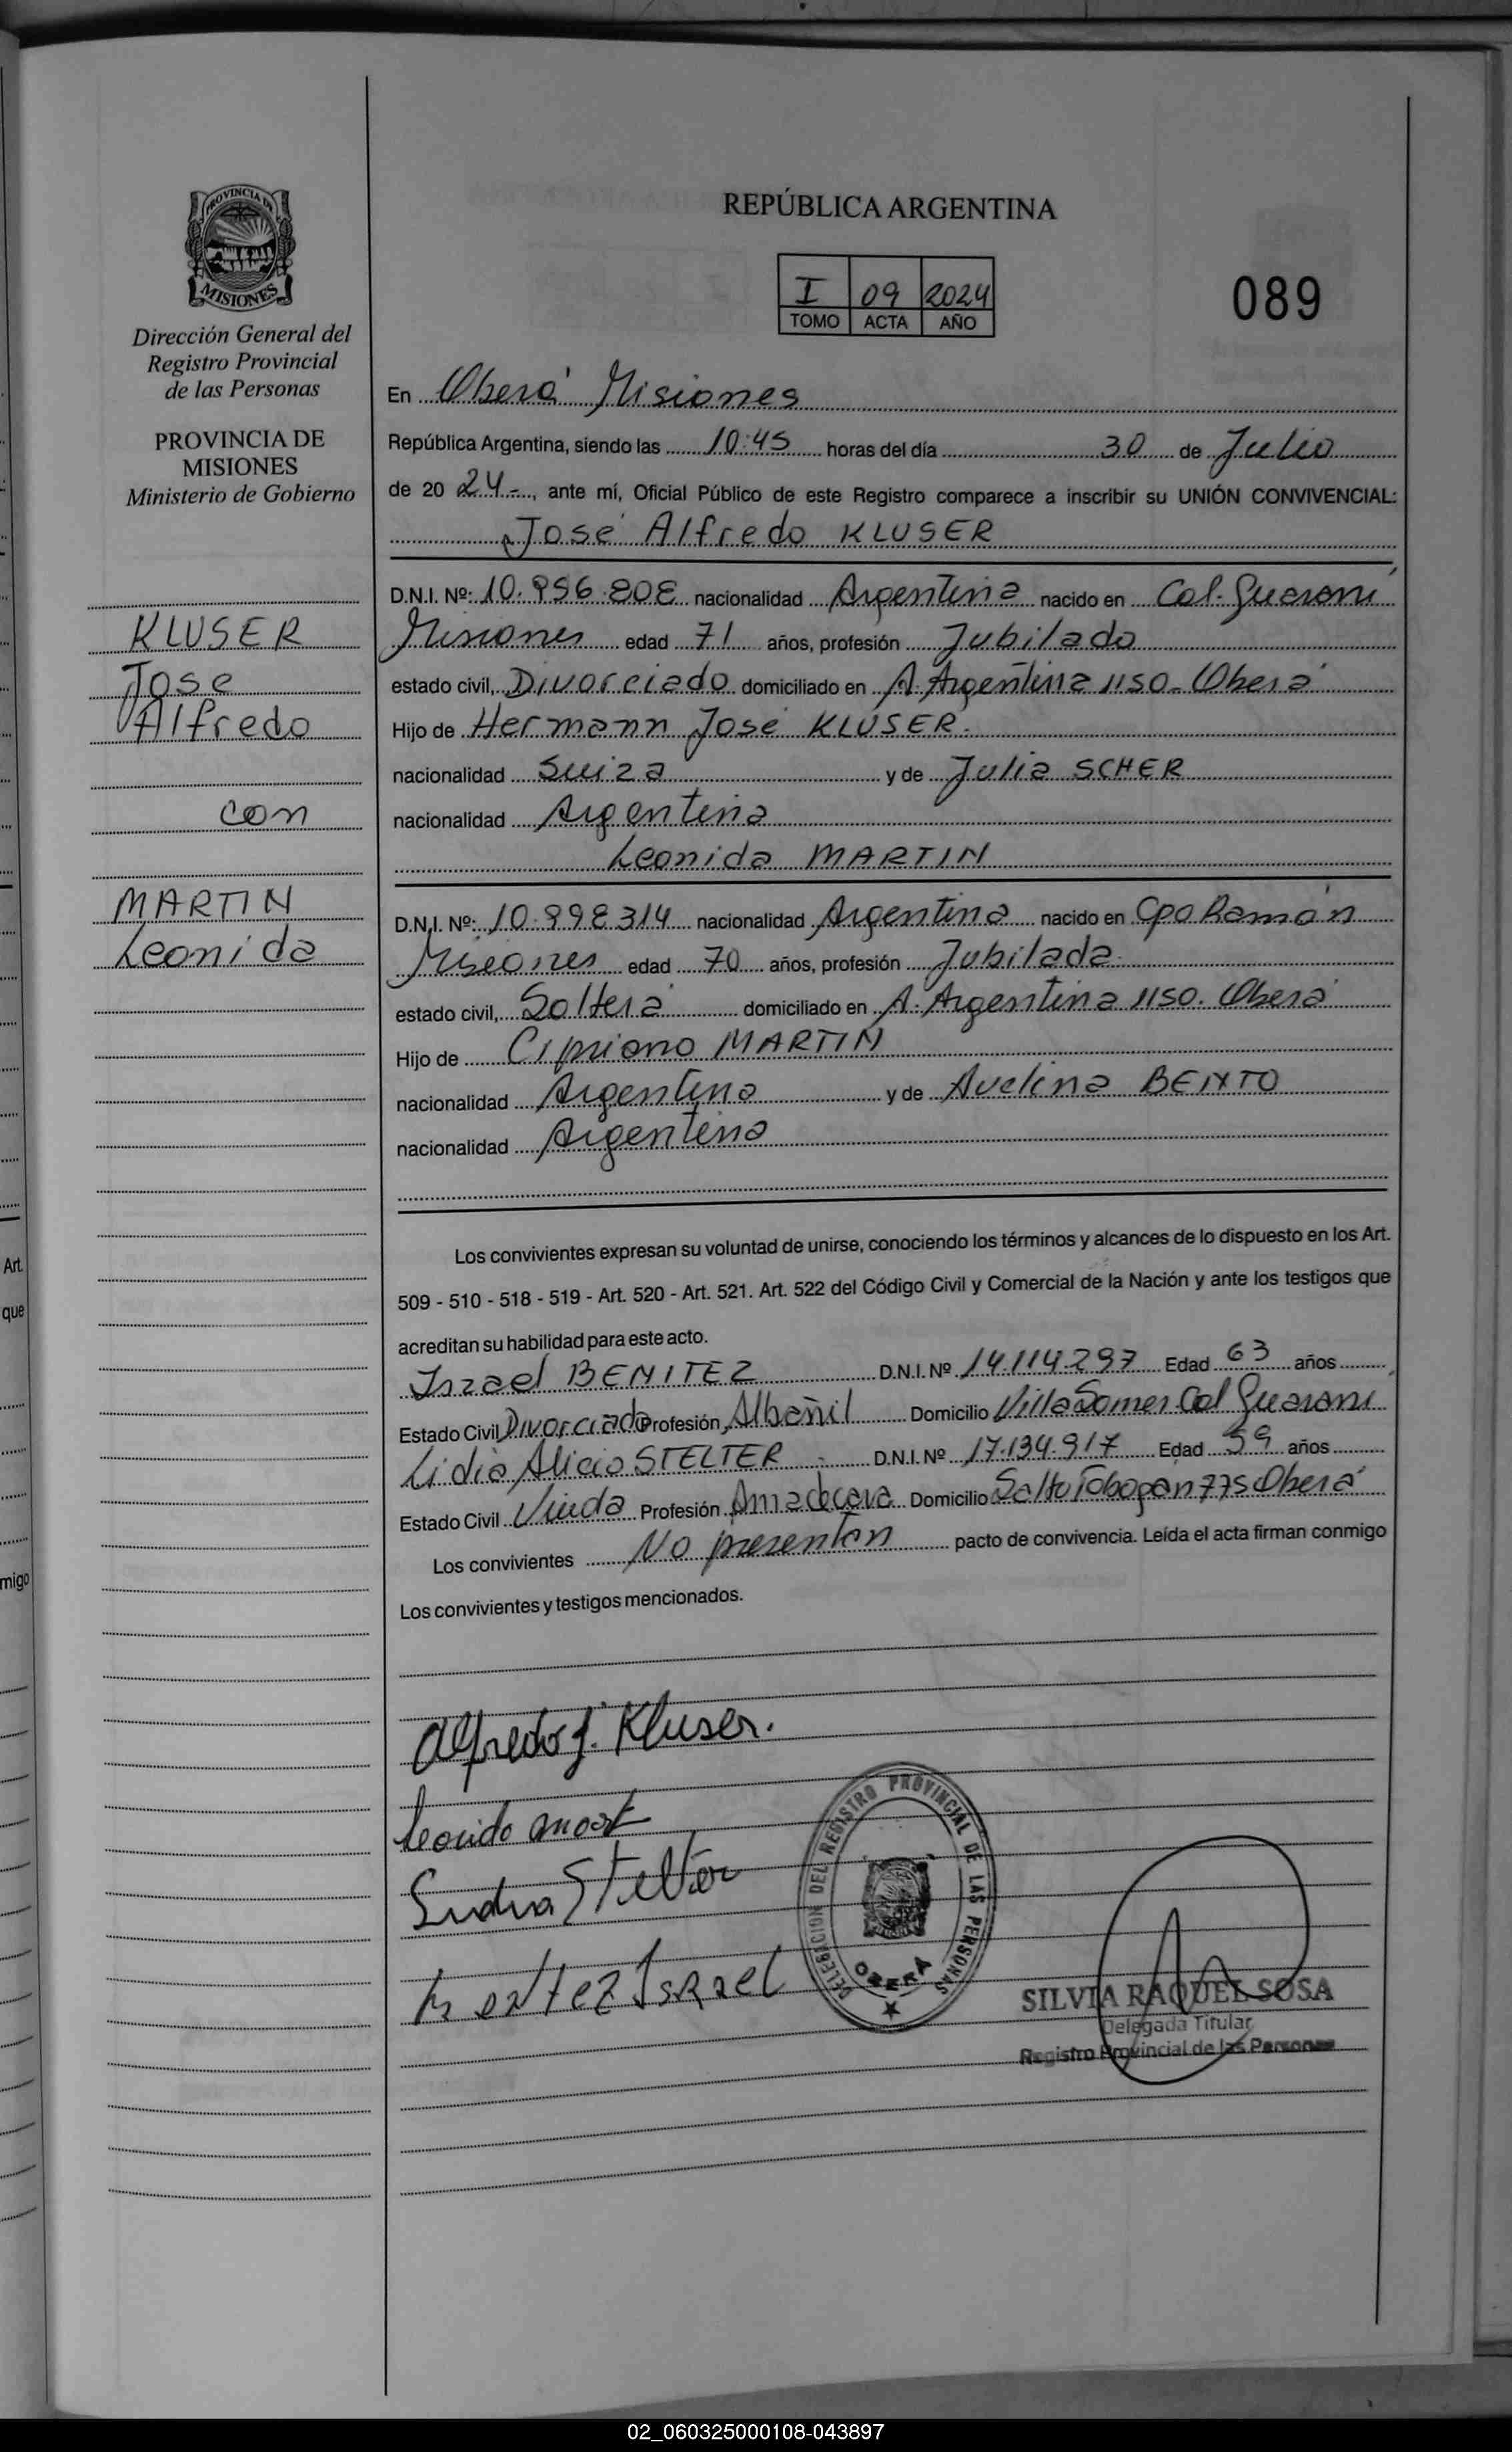 PROVINCIA DE
MISIONES
Dirección General del
Registro Provincial
de las Personas
PROVINCIA DE
MISIONES
Ministerio de Gobierno
KLUSER
Jose
Alfredo
con
MARTIN
Leonida
REPÚBLICA ARGENTINA
I 09 2024
TOMO ACTA AÑO
089
En Oberá Misiones
República Argentina, siendo las 10:45 horas del día 30 de Julio
de 20 24.-, ante mí, Oficial Público de este Registro comparece a inscribir su UNIÓN CONVIVENCIAL:
José Alfredo KLUSER
D.N.I. Nº: 10.896.808 nacionalidad Argentina nacido en Col. Guaraní
Misiones edad 71 años, profesión Jubilado
estado civil, Divorciado domiciliado en A. Argentina 1150- Oberá
Hijo de Hermann José KLUSER.
nacionalidad Suiza y de Julia SCHER
nacionalidad Argentina
Leonida MARTIN
D.N.I. Nº: 10.898.314 nacionalidad Argentina nacido en Cpo Ramón
Misiones edad 70 años, profesión Jubilada
estado civil, Soltera domiciliado en A. Argentina 1150. Oberá
Hijo de Cipriano MARTIN
nacionalidad Argentino y de Avelina BENTO
nacionalidad Argentina
Los convivientes expresan su voluntad de unirse, conociendo los términos y alcances de lo dispuesto en los Art.
509 - 510 - 518 - 519 - Art. 520 - Art. 521. Art. 522 del Código Civil y Comercial de la Nación y ante los testigos que
acreditan su habilidad para este acto.
Israel BENITEZ D.N.I. Nº 14.114.297 Edad 63 años
Estado Civil Divorciado Profesión Albañil Domicilio Villa Somer Col Guaraní
Lidia Alicia STELTER D.N.I. Nº 17.134.917 Edad 59 años
Estado Civil Viuda Profesión Ama de casa Domicilio Salto Tobogan 775 Oberá
Los convivientes No presentan pacto de convivencia. Leída el acta firman conmigo
Los convivientes y testigos mencionados.
Alfredo J. Kluser.
Leonida
Stelter
Israel
DELEGACION DEL REGISTRO PROVINCIAL DE LAS PERSONAS
OBERÁ
SILVIA RAQUEL SOSA
Delegada Titular
Registro Provincial de las Personas
Art.
que
migo
02_060325000108-043897